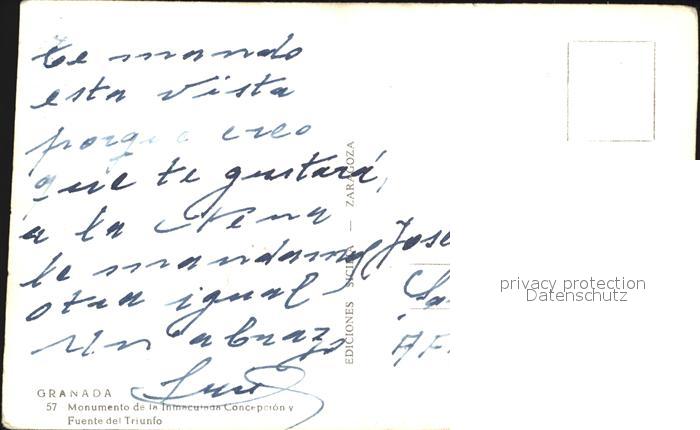 te mando
esta vista
porque creo
que te gustará,
a la Nena
le mandamos
otra igual
Un abrazo
Jose
AF.
EDICIONES SICILIA — ZARAGOZA
GRANADA
57 Monumento de la Inmaculada Concepción y
Fuente del Triunfo
privacy protection
Datenschutz